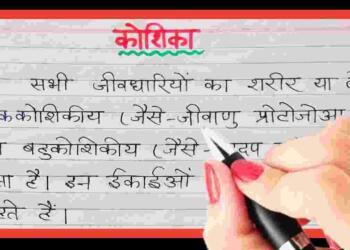 कोशिका
सभी जीवधारियों का शरीर या
ककोशिकीय (जैसे-जीवाणु प्रोटोजोआ
बहुकोशिकीय (जैसे-
है। इन ईकाईओं
हैं।